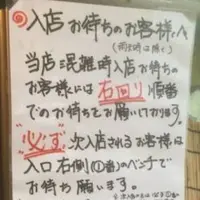 入店お待ちのお客様へ
当店混雑時入店お待ちの
お客様には右回り順番
でのお待ちをお願いしております。
"必ず"次入店されるお客様は
入口右側(①番)のベンチで
お待ち願います。